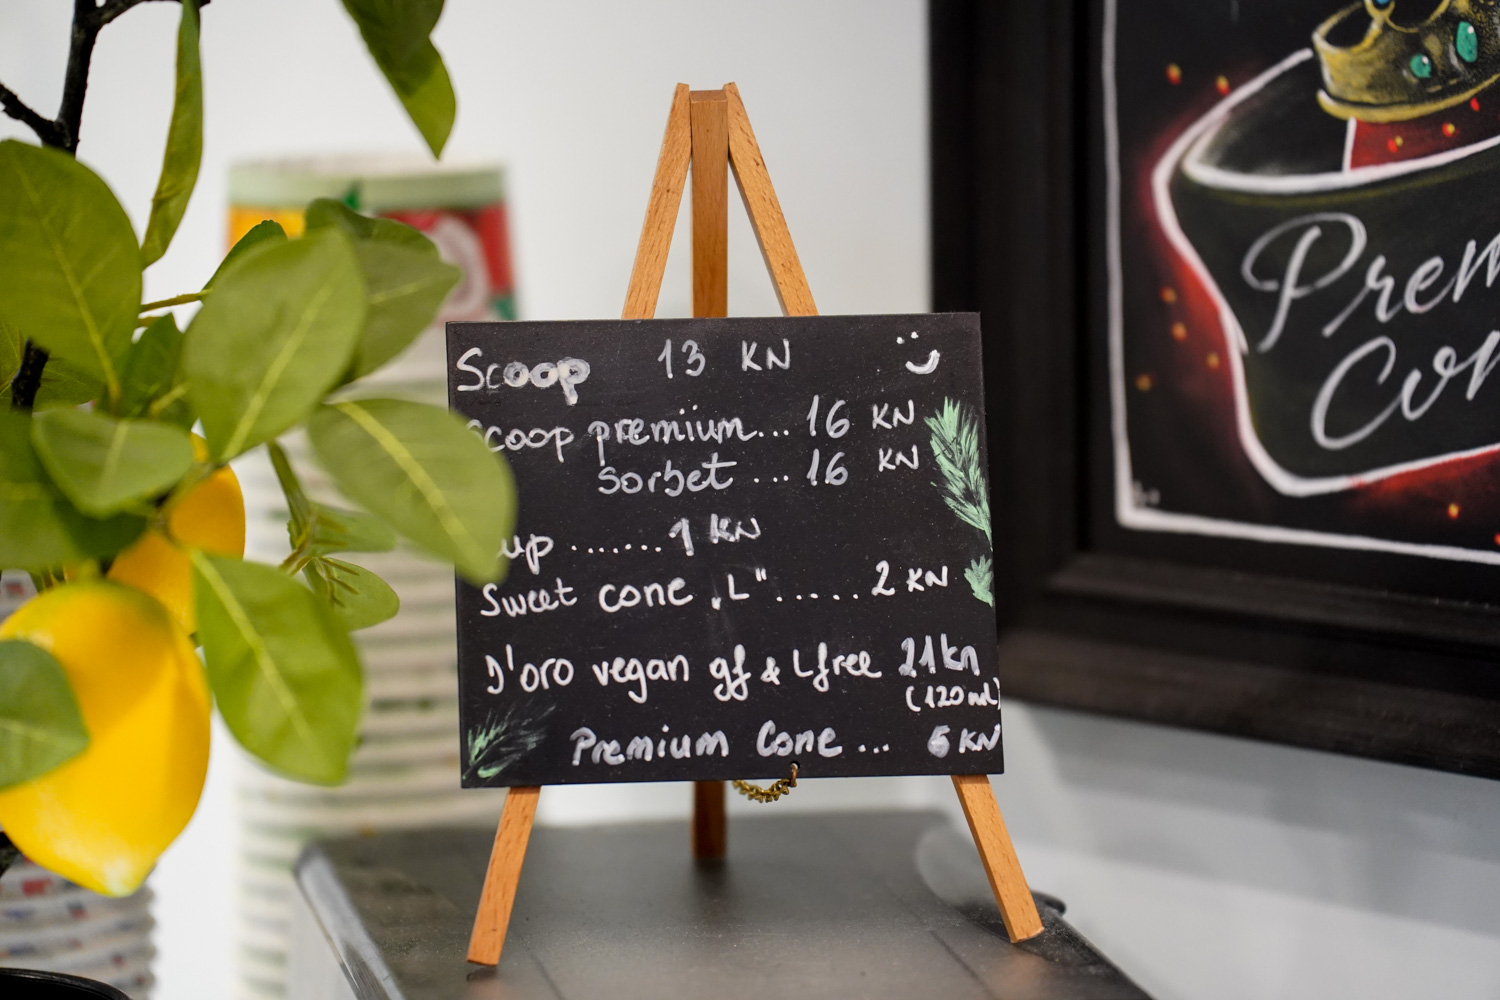 Scoop 13 KN
Scoop premium... 16 KN
sorbet ... 16 KN
up ....... 1 KN
Sweet cone „L"..... 2 KN
D'oro vegan gf & Lfree 21kn
(120 ml)
Premium Cone ... 5 KN
Prem
Con